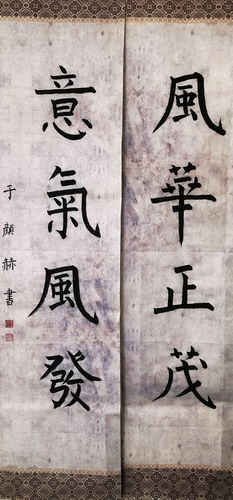 風華正茂
意氣風發
于顔赫書